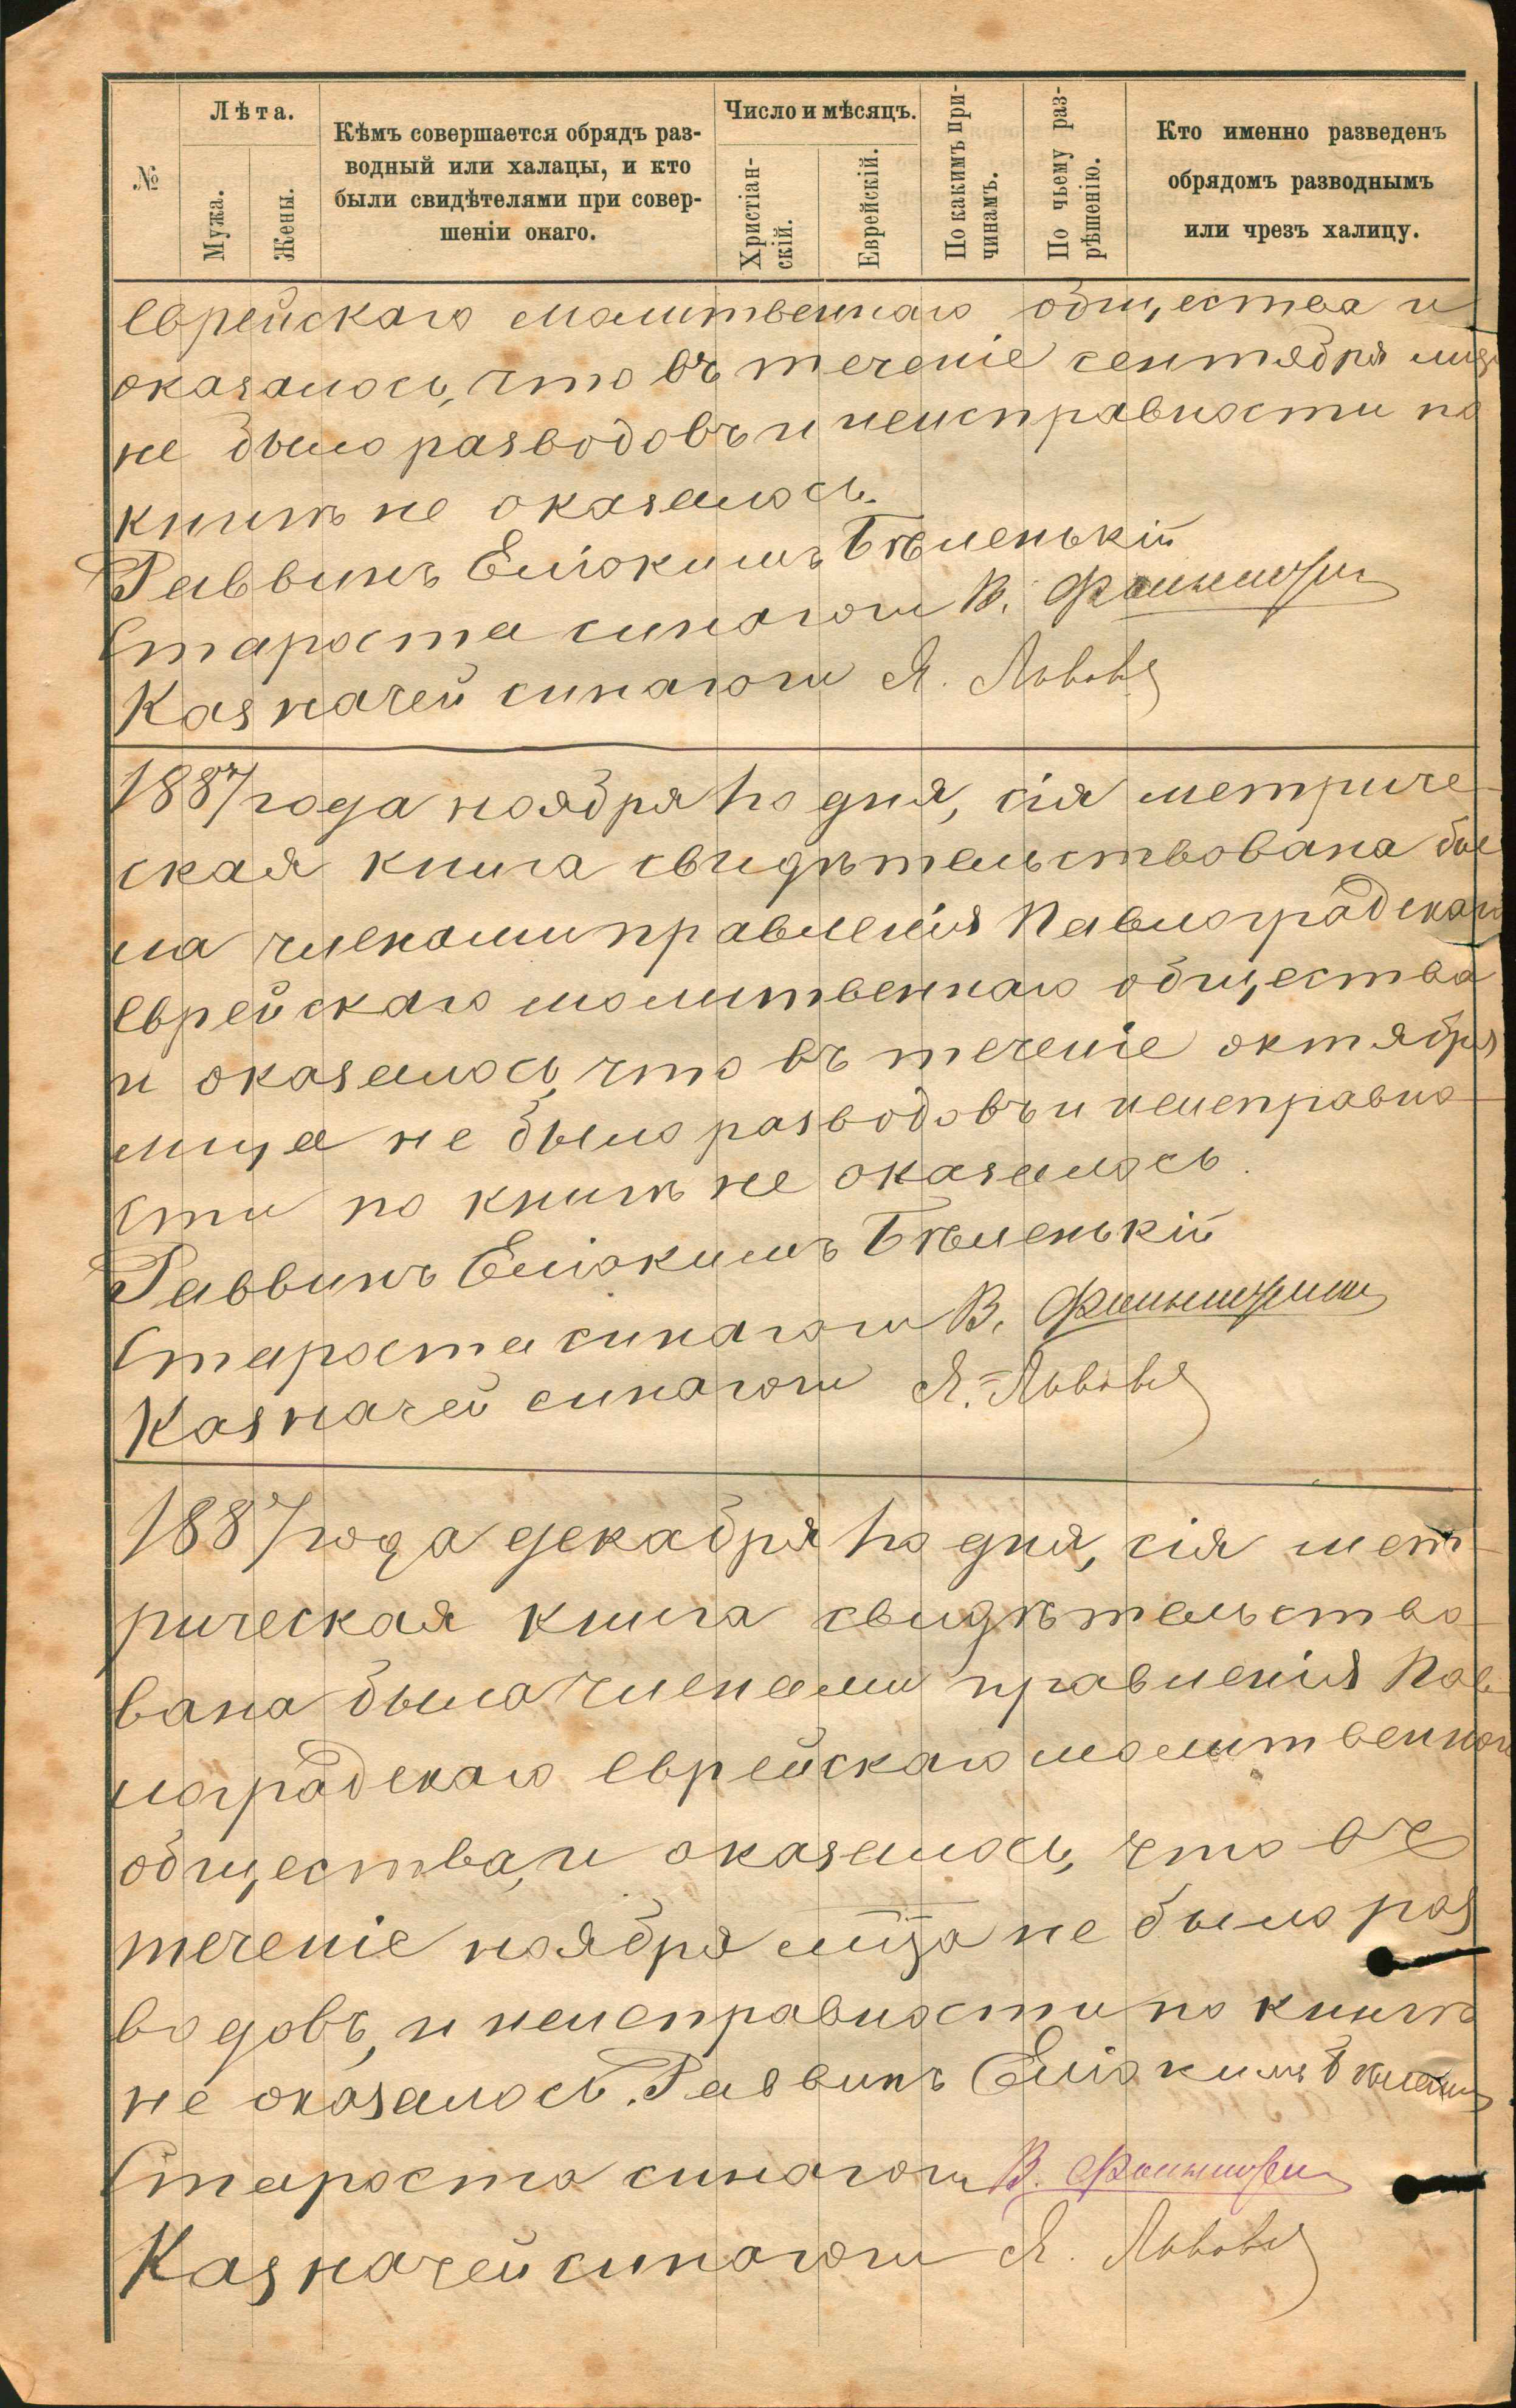 №
Лѣта.
Мужа.
Жены.
Кѣмъ совершается обрядъ раз-
водный или халацы, и кто
были свидѣтелями при совер-
шеніи окаго.
Число и мѣсяцъ.
Христіан-
скій.
Еврейскій.
По какимъ при-
чинамъ.
По чьему раз-
рѣшенію.
Кто именно разведенъ
обрядомъ разводнымъ
или чрезъ халицу.
еврейскаго молитвеннаго общества и
оказалось, что въ теченіе сентября
не было разводовъ и неисправности по
книгѣ не оказалось.
Раввинъ Еліокимъ Бѣленькій
Староста синагоги В.
Казначей синагоги Я. Львовъ
1887 года ноября 1го дня, сія метриче-
ская книга свидѣтельствована бы
ла членами правленія Павлоградскаго
еврейскаго молитвеннаго общества
и оказалось, что въ теченіе октября
мца не было разводовъ и неисправно-
сти по книгѣ не оказалось.
Раввинъ Еліокимъ Бѣленькій
Староста синагоги В.
Казначей синагоги Я. Львовъ
1887 года декабря 1го дня, сія мет-
рическая книга свидѣтельство-
вана была членами правленія Пав-
лоградскаго еврейскаго молитвеннаго
общества, и оказалось, что въ
теченіе ноября мца не было раз
водовъ, и неисправности по книгѣ
не оказалось. Раввинъ Еліокимъ Бѣленькій
Староста синагоги В.
Казначей синагоги Я. Львовъ